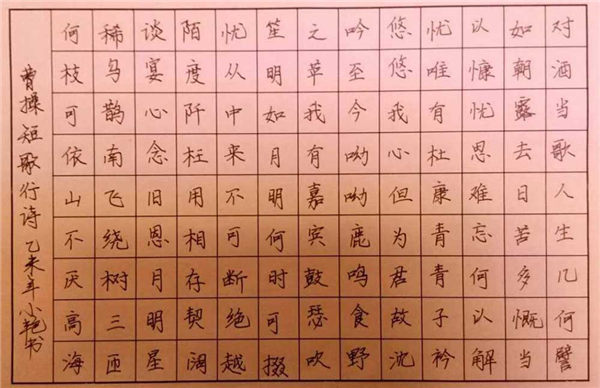 对酒当歌人生几何譬
如朝露去日苦多慨当
以慷忧思难忘何以解
忧唯有杜康青青子衿
悠悠我心但为君故沈
吟至今呦呦鹿鸣食野
之草我有嘉宾鼓瑟吹
笙明如月明何时可掇
忧从中来不可断绝越
陌度阡枉用相存契阔
谈宴心念旧恩月明星
稀乌鹊南飞绕树三匝
何枝可依山不厌高海
曹操短歌行诗 乙未年小艳书